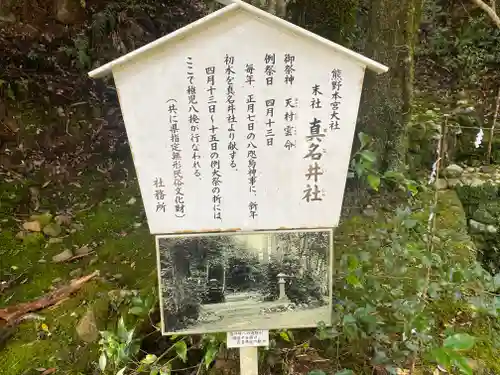 熊野本宮大社
末社 真名井社
御祭神 天村雲命
例祭日 四月十三日
毎年 正月七日の八咫烏神事に、新年
初水を真名井社より献ずる。
四月十三日～十五日の例大祭の折には、
ここで稚児八撥が行なわれる。
(共に県指定無形民俗文化財)
社務所